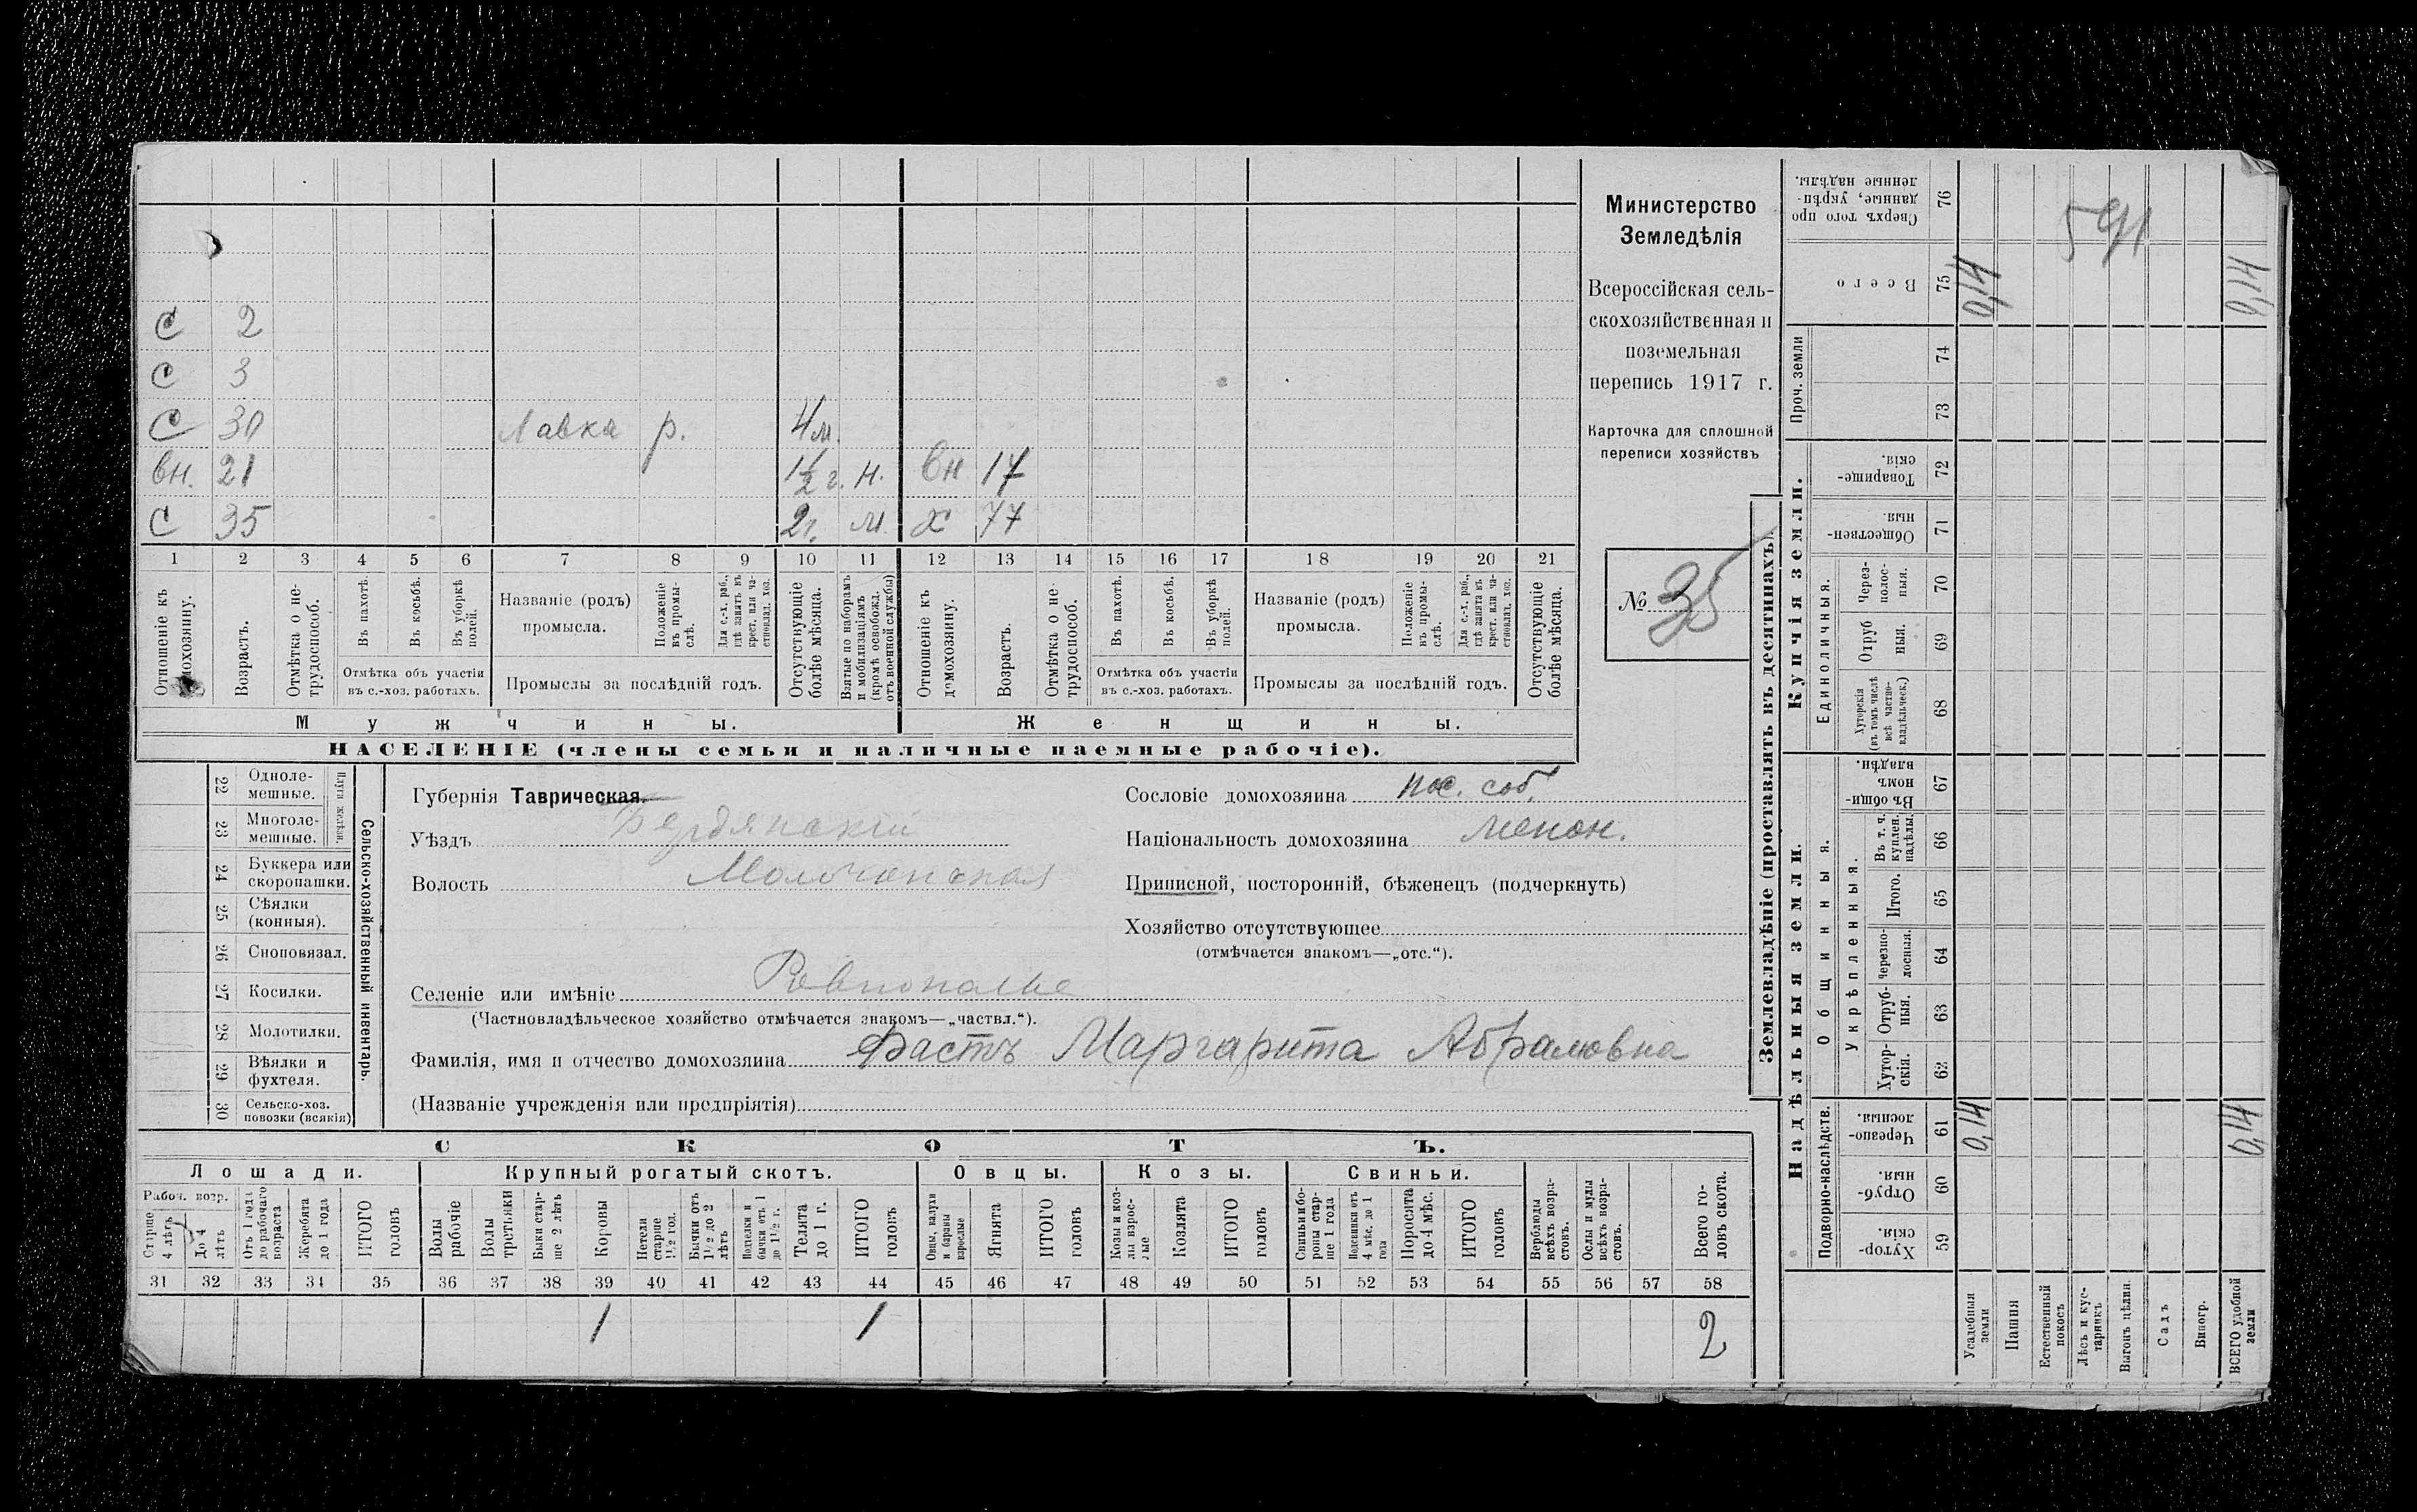 С 2
С 3
С 30 Лавка р. 4 м.
вн. 21 1½ г. н. вн 17
С 35 2 г. м. х 77
1 2 3 4 5 6 7 8 9 10 11 12 13 14 15 16 17 18 19 20 21
Отношеніе къ домохозяину.
Возрастъ.
Отмѣтка о нетрудоспособ.
Въ пахотѣ.
Въ косьбѣ.
Въ уборкѣ полей.
Отмѣтка объ участіи
въ с.-хоз. работахъ.
Названіе (родъ)
промысла.
Положеніе въ промыслѣ.
Для с.-х. раб., гдѣ занятъ въ крест. или частновлад. хоз.
Промыслы за послѣдній годъ.
Отсутствующіе болѣе мѣсяца.
Взятые по наборамъ и мобилизаціямъ (кромѣ освобожд. отъ военной службы)
Отношеніе къ домохозяину.
Возрастъ.
Отмѣтка о нетрудоспособ.
Въ пахотѣ.
Въ косьбѣ.
Въ уборкѣ полей.
Отмѣтка объ участіи
въ с.-хоз. работахъ.
Названіе (родъ)
промысла.
Положеніе въ промыслѣ.
Для с.-х. раб., гдѣ занята въ крест. или частновлад. хоз.
Промыслы за послѣдній годъ.
Отсутствующіе болѣе мѣсяца.
Мужчины. Женщины.
НАСЕЛЕНІЕ (члены семьи и наличные наемные рабочіе).
Министерство
Земледѣлія
Всероссійская сель-
скохозяйственная и
поземельная
перепись 1917 г.
Карточка для сплошной
переписи хозяйствъ
№ 35
22 Одноле-
мешные.
23 Многоле-
мешные.
24 Буккера или
скоропашки.
25 Сѣялки
(конныя).
26 Сноповязал.
27 Косилки.
28 Молотилки.
29 Вѣялки и
фухтеля.
30 Сельско-хоз.
повозки (всякія)
Сельско-хозяйственный инвентарь.
Губернія Таврическая.
Уѣздъ Бердянскій
Волость Молочанская
Сословіе домохозяина пос. соб.
Національность домохозяина менон.
Приписной, посторонній, бѣженецъ (подчеркнуть)
Хозяйство отсутствующее
(отмѣчается знакомъ—„отс.“).
Селеніе или имѣніе
(Частновладѣльческое хозяйство отмѣчается знакомъ—„частвл.“).
Фамилія, имя и отчество домохозяина Фастъ Маргарита Абрамовна
(Названіе учрежденія или предпріятія)
СКОТЪ.
Лошади. Крупный рогатый скотъ. Овцы. Козы. Свиньи.
Рабоч. возр.
Старше 4 лѣтъ
До 4 лѣтъ
Отъ 1 года до рабочаго возраста
Жеребята до 1 года
ИТОГО головъ
Волы рабочіе
Волы третьяки
Быки старше 2 лѣтъ
Коровы
Нетели старше 1½ год.
Бычки отъ 1½ до 2 лѣтъ
Подтелки и бычки отъ 1 до 1½ г.
Телята до 1 г.
ИТОГО головъ
Овцы, валухи и бараны взрослые
Ягнята
ИТОГО головъ
Козы и козлы взрослые
Козлята
ИТОГО головъ
Свиньи и боровы старше 1 года
Подсвинки отъ 4 мѣс. до 1 года
Поросята до 4 мѣс.
ИТОГО головъ
Верблюды всѣхъ возрастовъ.
Ослы и мулы всѣхъ возрастовъ.
Всего головъ скота.
31 32 33 34 35 36 37 38 39 40 41 42 43 44 45 46 47 48 49 50 51 52 53 54 55 56 57 58
1 1 2
Землевладѣніе (проставлять въ десятинахъ).
Надѣльныя земли. Купчія земли. Проч. земли
Подворно-наслѣдств.
Общинныя.
Укрѣпленныя.
Единоличныя.
Хуторскія. 59
Отрубныя. 60
Черезполосныя. 61
Хуторскія. 62
Отрубныя. 63
Черезполосныя. 64
Итого. 65
Въ т. ч. куплен. надѣлы. 66
Въ общинномъ владѣн. 67
Хуторскія (въ томъ числѣ всѣ частновладѣльческ.) 68
Отрубныя. 69
Черезполосныя. 70
Общественныя. 71
Товарищескія. 72
73
74
Всего 75
Сверхъ того проданные, укрѣпленные надѣлы. 76
Усадебная земли
Пашня
Естественный покосъ
Лѣсъ и кустарникъ
Выгонъ цѣлин.
Садъ
Виногр.
ВСЕГО удобной земли
0,14 0,14
0,14 0,14
591